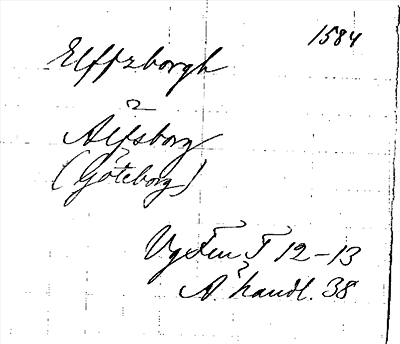 1584
Elffzborgh
Älfsborg
(Göteborg)
12-13
handl. 38